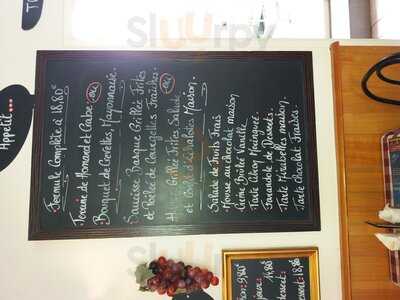 Appetit
Formule Complète à 18,80€
Terrine de Homard et Crabe ou
Bouquet de Crevettes, Mayonnaise.
Saucisse Basque Grillée Frites
et Poêlée de Courgettes Fraîches ou
Grillée Frites Salade
Maison.
Salade de Fruits Frais
Mousse au chocolat maison
Crème Brûlée Vanille
Tarte Citron Meringuée.
Farandole de Desserts.
Tarte Mirabelles maison.
Tarte Chocolat Fraises.
Sluurpy
14,80€
dessert: 18,80